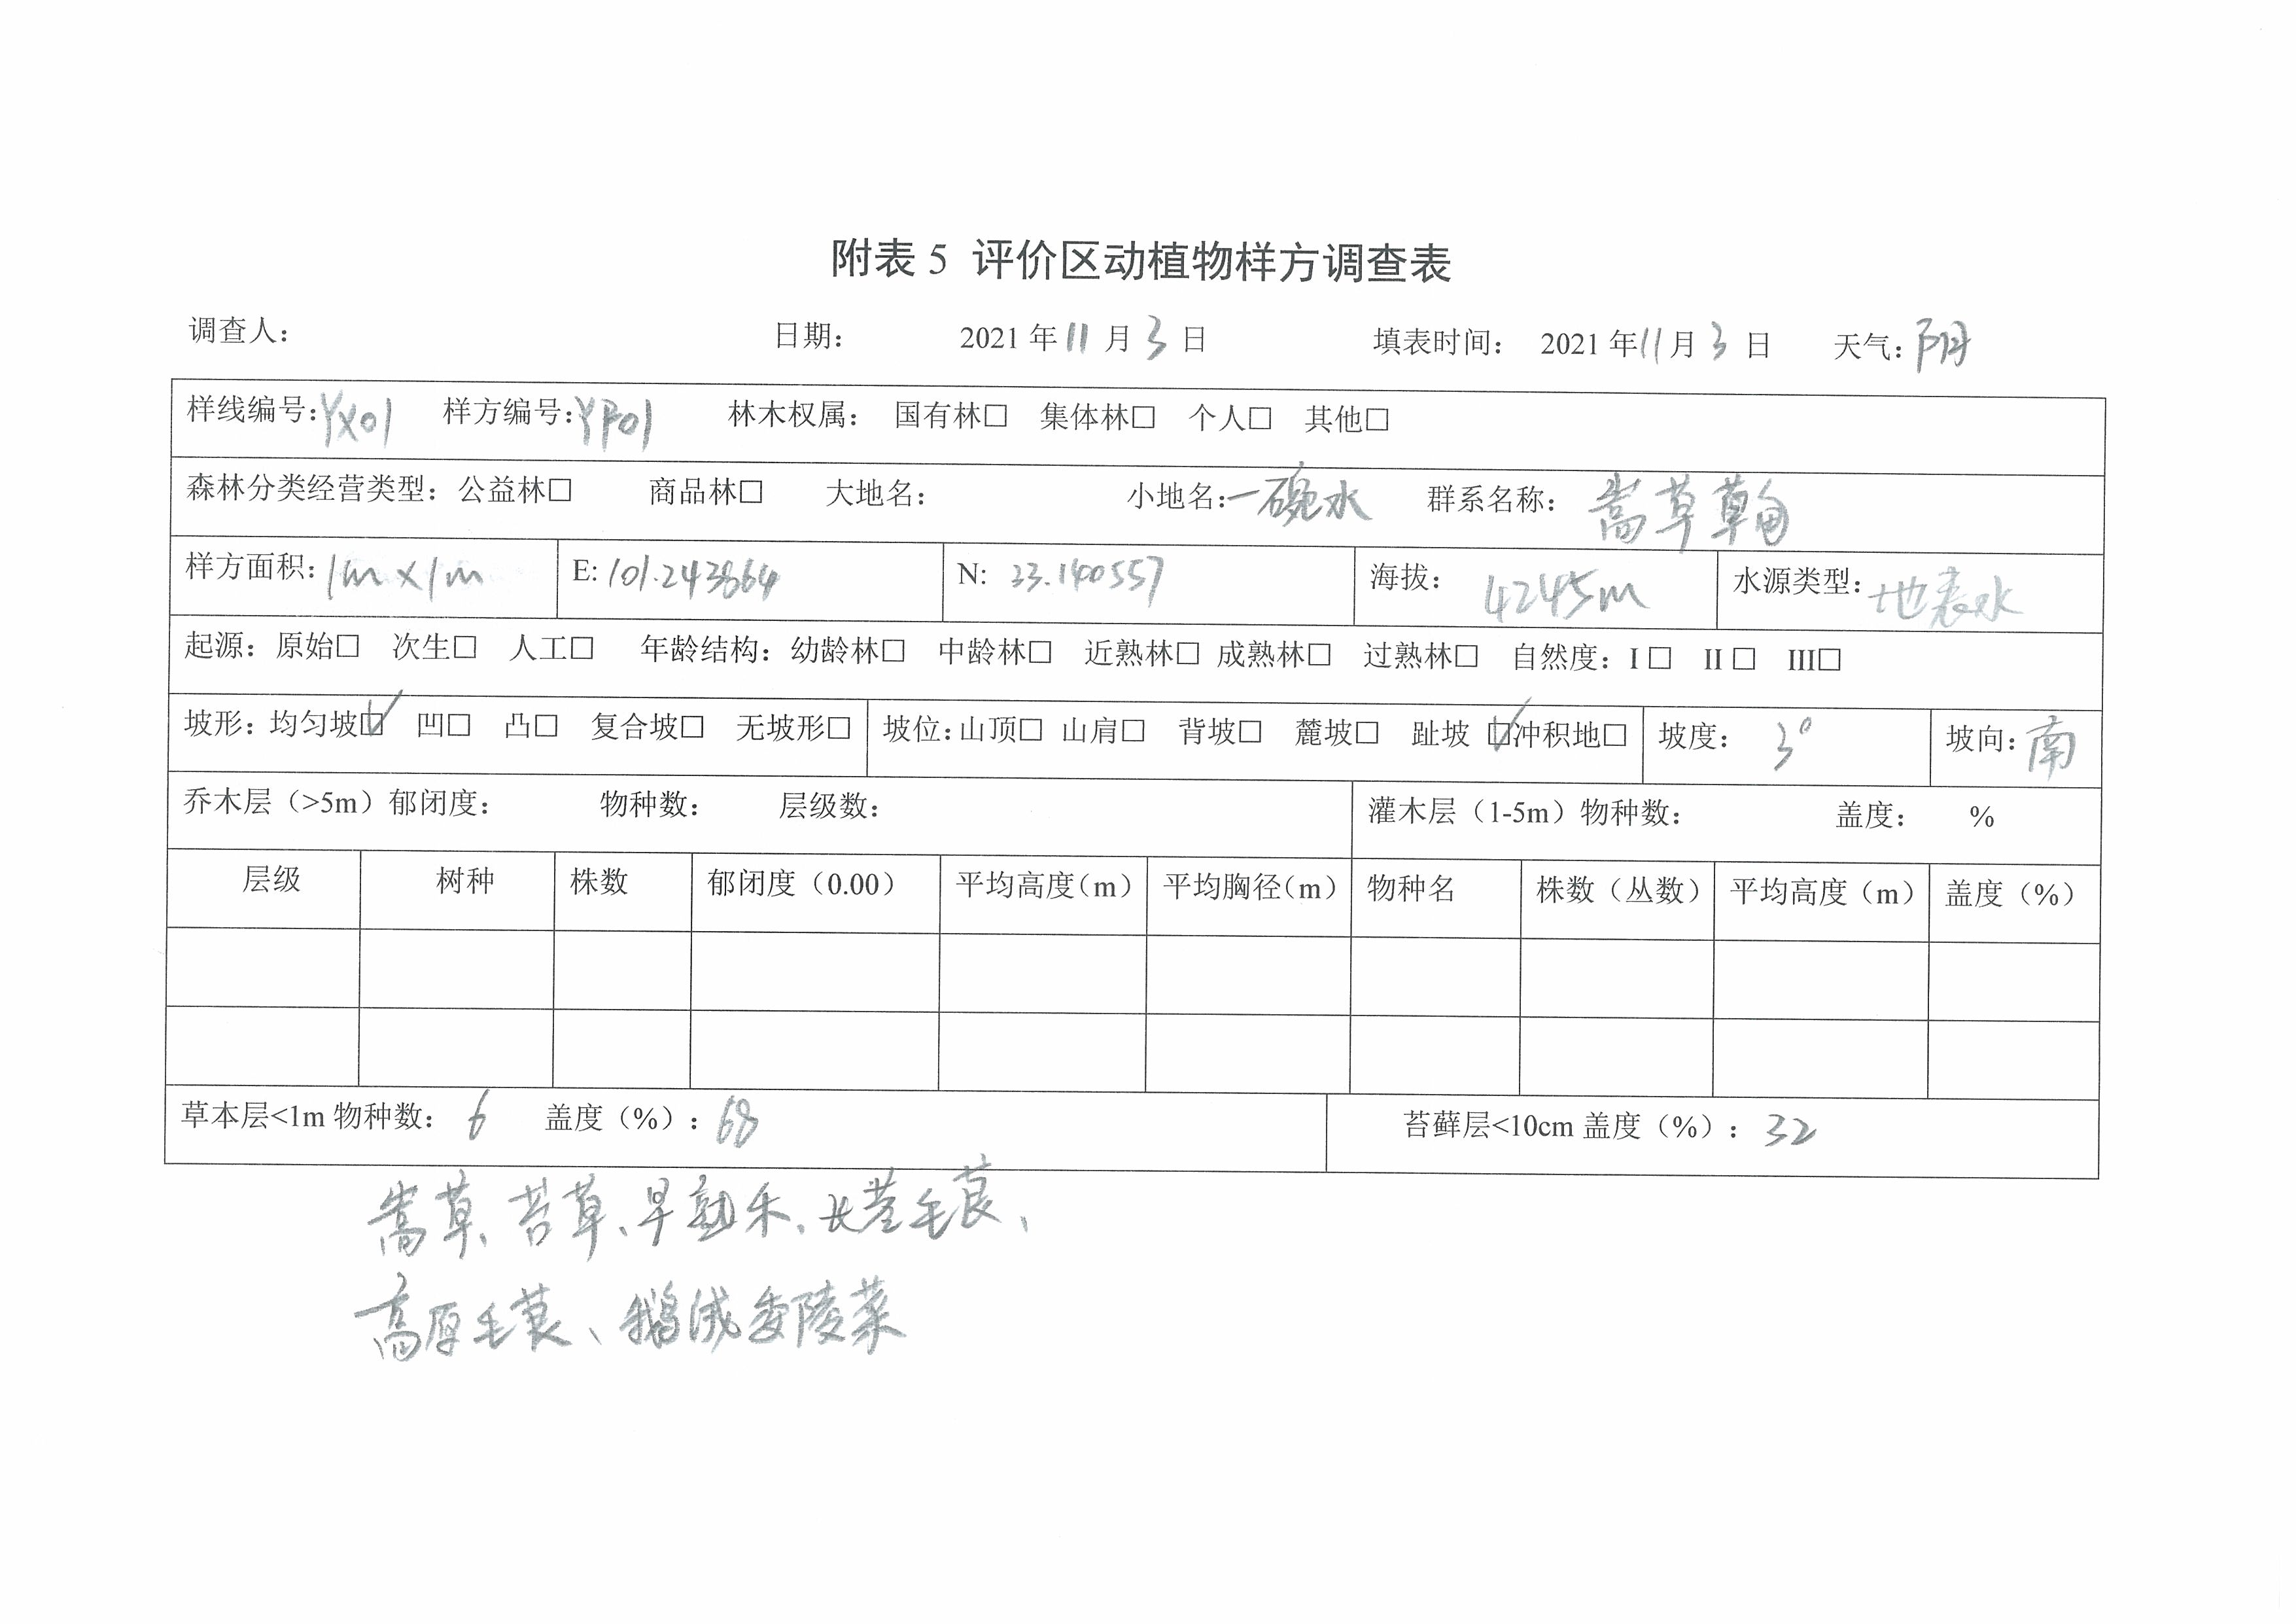 附表 5 评价区动植物样方调查表
调查人： 日期： 2021 年 11 月 3 日 填表时间： 2021 年 11 月 3 日 天气：阴
样线编号：YX01 样方编号：YF01 林木权属： 国有林□ 集体林□ 个人□ 其他□
森林分类经营类型：公益林□ 商品林□ 大地名： 小地名：一碗水 群系名称： 嵩草草甸
样方面积：1m×1m E: 101.243864 N: 33.140557 海拔： 4245m 水源类型：地表水
起源：原始□ 次生□ 人工□ 年龄结构：幼龄林□ 中龄林□ 近熟林□ 成熟林□ 过熟林□ 自然度：I □ II □ III□
坡形：均匀坡☑ 凹□ 凸□ 复合坡□ 无坡形□ 坡位：山顶□ 山肩□ 背坡□ 麓坡□ 趾坡 ☑冲积地□ 坡度： 3° 坡向：南
乔木层（>5m）郁闭度： 物种数： 层级数： 灌木层（1-5m）物种数： 盖度： %
层级 树种 株数 郁闭度（0.00） 平均高度（m） 平均胸径（m） 物种名 株数（丛数） 平均高度（m） 盖度（%）
草本层<1m 物种数： 6 盖度（%）：68 苔藓层<10cm 盖度（%）：32
嵩草、苔草、早熟禾、长茎毛茛、
高原毛茛、鹅绒委陵菜